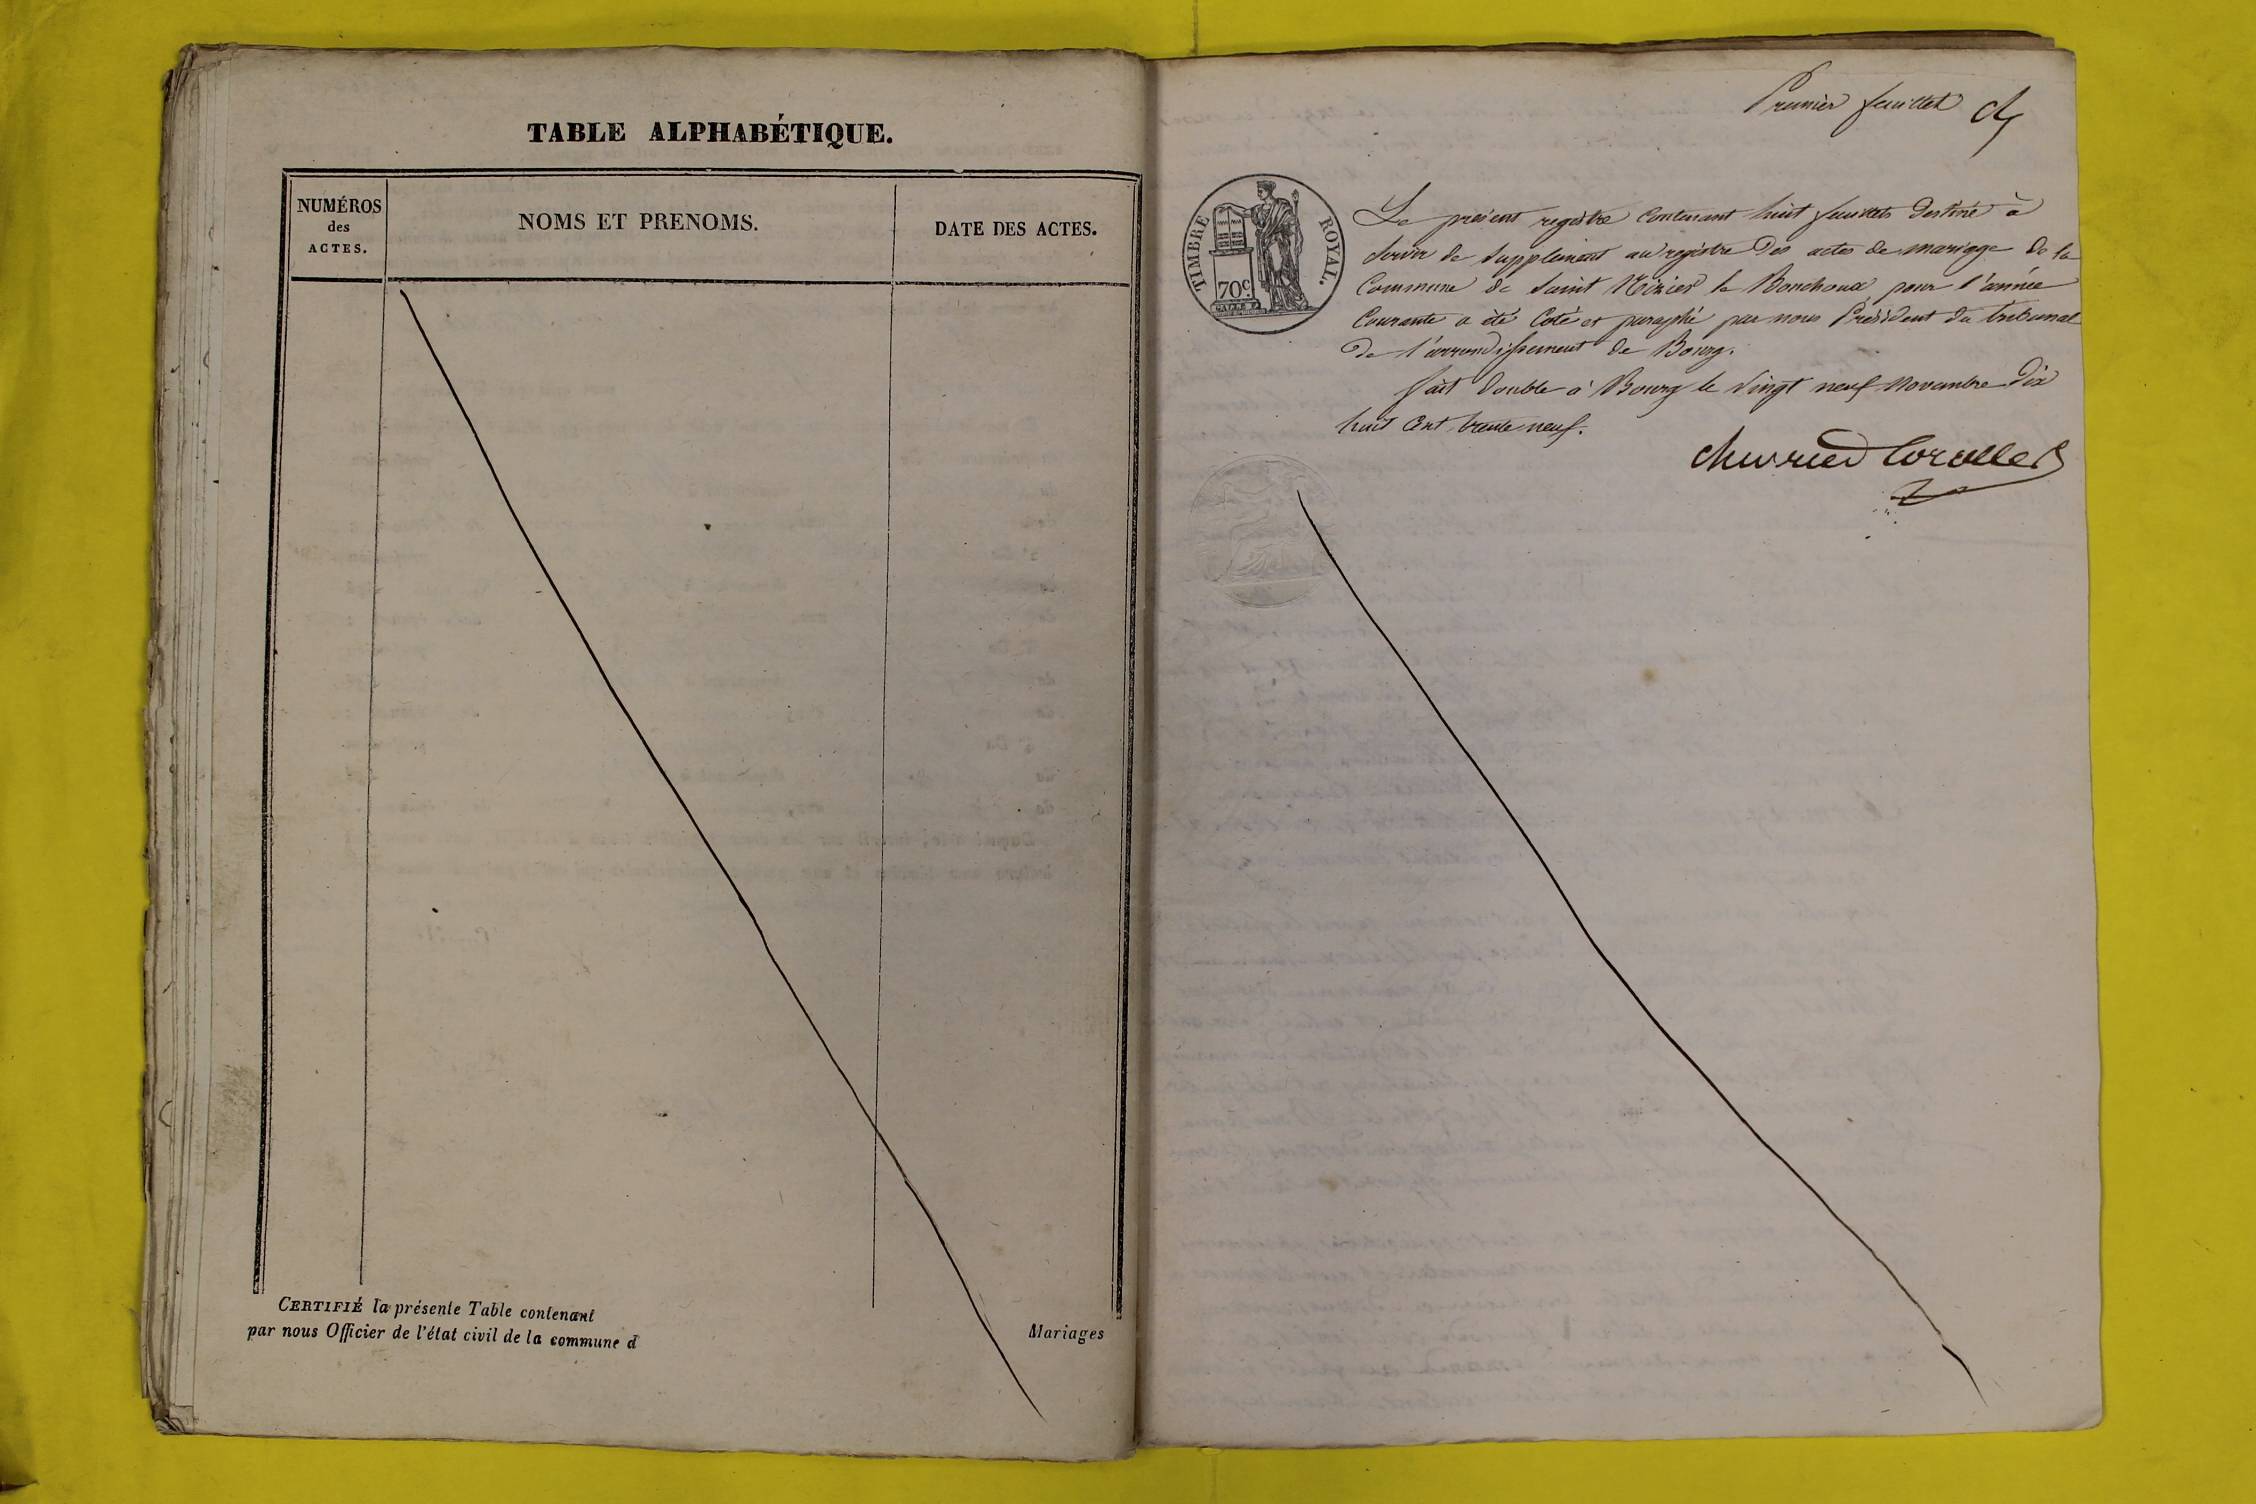 TABLE ALPHABÉTIQUE.
NUMÉROS
des
ACTES.
NOMS ET PRENOMS.
DATE DES ACTES.
CERTIFIÉ la présente Table contenant
par nous Officier de l'état civil de la commune d
Mariages
Premier feuillet
TIMBRE ROYAL.
70c.
Le présent registre contenant huit feuillets destiné à
servir de supplément au registre des actes de mariage de la
Commune de Saint Nizier le Bouchoux pour l'année
Courante a été Coté et paraphé par nous Président du tribunal
de l'arrondissement de Bourg.
fait double à Bourg le vingt neuf Novembre dix
huit cent trente neuf.